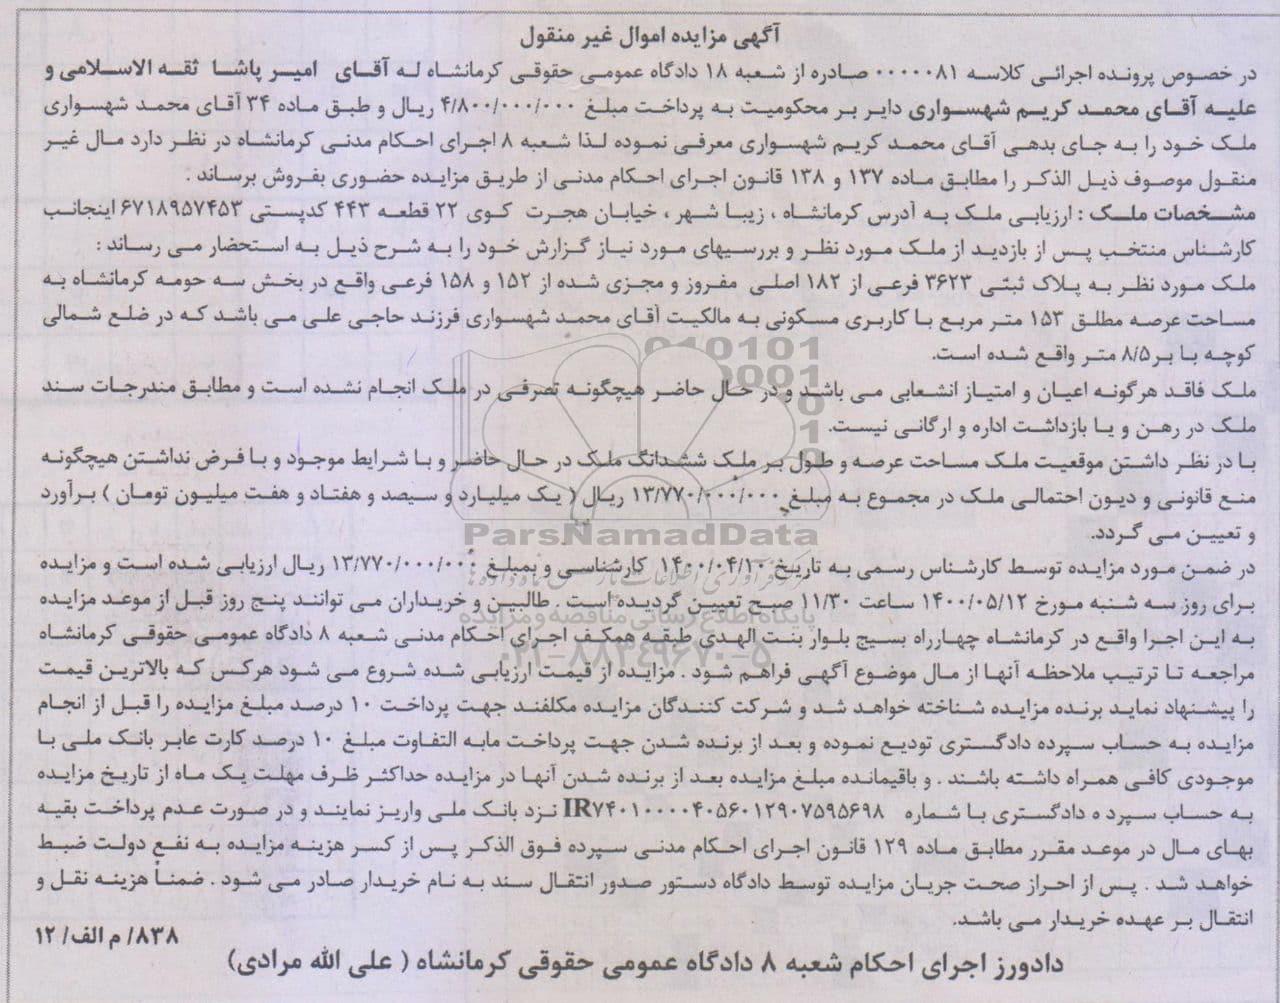 آگهی مزایده اموال غیر منقول
در خصوص پرونده اجرائی کلاسه ۰۰۰۰۰۸۱ صادره از شعبه ۱۸ دادگاه عمومی حقوقی کرمانشاه له آقای امیر پاشا ثقه الاسلامی و
علیه آقای محمد کریم شهسواری دایر بر محکومیت به پرداخت مبلغ ۴/۸۰۰/۰۰۰/۰۰۰ ریال و طبق ماده ۳۴ آقای محمد شهسواری
ملک خود را به جای بدهی آقای محمد کریم شهسواری معرفی نموده لذا شعبه ۸ اجرای احکام مدنی کرمانشاه در نظر دارد مال غیر
منقول موصوف ذیل الذکر را مطابق ماده ۱۳۷ و ۱۳۸ قانون اجرای احکام مدنی از طریق مزایده حضوری بفروش برساند .
مشخصات ملک : ارزیابی ملک به آدرس کرمانشاه ، زیبا شهر ، خیابان هجرت کوی ۲۲ قطعه ۴۴۳ کدپستی ۶۷۱۸۹۵۷۴۵۳ اینجانب
کارشناس منتخب پس از بازدید از ملک مورد نظر و بررسیهای مورد نیاز گزارش خود را به شرح ذیل به استحضار می رساند :
ملک مورد نظر به پلاک ثبتی ۳۶۲۳ فرعی از ۱۸۲ اصلی مفروز و مجزی شده از ۱۵۲ و ۱۵۸ فرعی واقع در بخش سه حومه کرمانشاه به
مساحت عرصه مطلق ۱۵۳ متر مربع با کاربری مسکونی به مالکیت آقای محمد شهسواری فرزند حاجی علی می باشد که در ضلع شمالی
کوچه با بر ۸/۵ متر واقع شده است.
ملک فاقد هرگونه اعیان و امتیاز انشعابی می باشد و در حال حاضر هیچگونه تصرفی در ملک انجام نشده است و مطابق مندرجات سند
ملک در رهن و یا بازداشت اداره و ارگانی نیست.
با در نظر داشتن موقعیت ملک مساحت عرصه و طول بر ملک ششدانگ ملک در حال حاضر و با شرایط موجود و با فرض نداشتن هیچگونه
منع قانونی و دیون احتمالی ملک در مجموع به مبلغ ۱۳/۷۷۰/۰۰۰/۰۰۰ ریال ( یک میلیارد و سیصد و هفتاد و هفت میلیون تومان ) برآورد
و تعیین می گردد.
در ضمن مورد مزایده توسط کارشناس رسمی به تاریخ ۱۴۰۰/۰۴/۱۰ کارشناسی و بمبلغ ۱۳/۷۷۰/۰۰۰/۰۰۰ ریال ارزیابی شده است و مزایده
برای روز سه شنبه مورخ ۱۴۰۰/۰۵/۱۲ ساعت ۱۱/۳۰ صبح تعیین گردیده است . طالبین و خریداران می توانند پنج روز قبل از موعد مزایده
به این اجرا واقع در کرمانشاه چهارراه بسیج بلوار بنت الهدی طبقه همکف اجرای احکام مدنی شعبه ۸ دادگاه عمومی حقوقی کرمانشاه
مراجعه تا ترتیب ملاحظه آنها از مال موضوع آگهی فراهم شود . مزایده از قیمت ارزیابی شده شروع می شود هرکس که بالاترین قیمت
را پیشنهاد نماید برنده مزایده شناخته خواهد شد و شرکت کنندگان مزایده مکلفند جهت پرداخت ۱۰ درصد مبلغ مزایده را قبل از انجام
مزایده به حساب سپرده دادگستری تودیع نموده و بعد از برنده شدن جهت پرداخت مابه التفاوت مبلغ ۱۰ درصد کارت عابر بانک ملی با
موجودی کافی همراه داشته باشند . و باقیمانده مبلغ مزایده بعد از برنده شدن آنها در مزایده حداکثر ظرف مهلت یک ماه از تاریخ مزایده
به حساب سپرد ه دادگستری با شماره IR۷۴۰۱۰۰۰۰۴۰۵۶۰۱۲۹۰۷۵۹۵۶۹۸ نزد بانک ملی واریز نمایند و در صورت عدم پرداخت بقیه
بهای مال در موعد مقرر مطابق ماده ۱۲۹ قانون اجرای احکام مدنی سپرده فوق الذکر پس از کسر هزینه مزایده به نفع دولت ضبط
خواهد شد . پس از احراز صحت جریان مزایده توسط دادگاه دستور صدور انتقال سند به نام خریدار صادر می شود . ضمناً هزینه نقل و
انتقال بر عهده خریدار می باشد.
۸۳۸/ م الف/ ۱۲
دادورز اجرای احکام شعبه ۸ دادگاه عمومی حقوقی کرمانشاه ( علی الله مرادی)
ParsNamadData
پایگاه اطلاع رسانی مناقصه و مزایده
۰۲۱-۸۸۳۴۹۶۷۰-۵